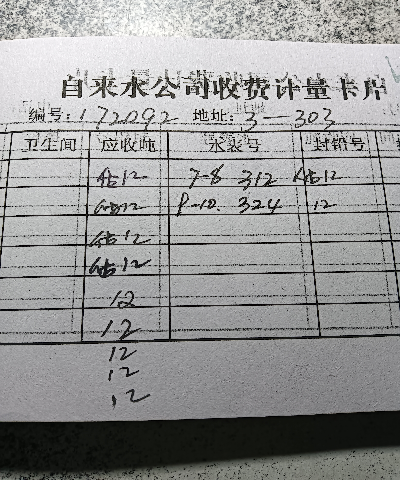 自来水公司收费计量卡片
编号: 172092 地址: 3-303
卫生间 应收吨 水装号 封铅号
估12 7-8 312 估12
估12 9-10. 324 12
估12
估12
12
12
12
12
12